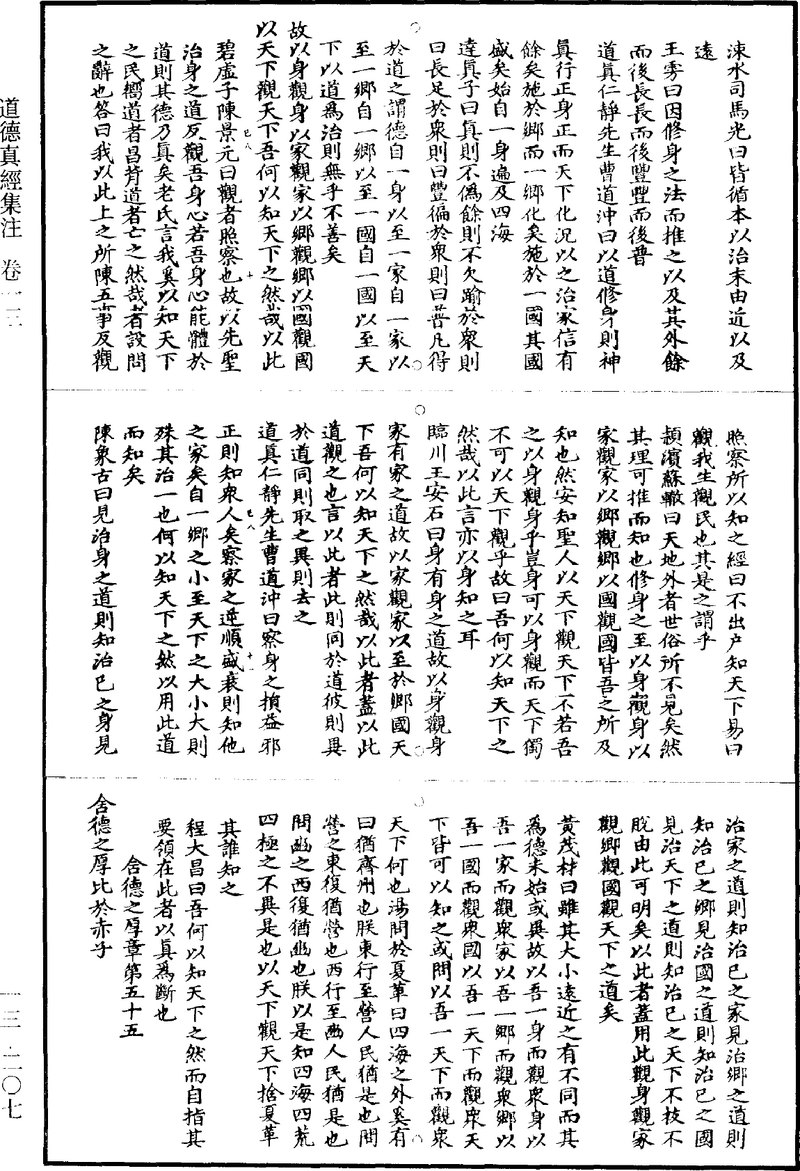 涑水司馬光曰皆循本以治末由近以及
遠
王雱曰因修身之法而推之以及其外餘
而後長長而後豐豐而後普
道真仁靜先生曹道沖曰以道修身則神
真行正身正而天下化況以之治家信有
餘矣施於鄉而一鄉化矣施於一國其國
盛矣始自一身遍及四海
達真子曰真則不偽餘則不欠踰於衆則
曰長足於衆則曰豐徧於衆則曰普凡得
於道之謂德自一身以至一家自一家以
至一鄉自一鄉以至一國自一國以至天
下以道為治則無乎不善矣
故以身觀身以家觀家以鄉觀鄉以國觀國
以天下觀天下吾何以知天下之然哉以此
碧虛子陳景元曰觀者照察也故以先聖
治身之道反觀吾身心若吾身心能體於
道則其德乃真矣老氏言我奚以知天下
之民嚮道者昌背道者亡之然哉者設問
之辭也答曰我以此上之所陳五事反觀
照察所以知之經曰不出户知天下易曰
觀我生觀民也其是之謂乎
潁濱蘇轍曰天地外者世俗所不見矣然
其理可推而知也修身之至以身觀身以
家觀家以鄉觀鄉以國觀國皆吾之所及
知也然安知聖人以天下觀天下不若吾
之以身觀身乎豈身可以身觀而天下獨
不可以天下觀乎故曰吾何以知天下之
然哉以此言亦以身知之耳
臨川王安石曰身有身之道故以身觀身
家有家之道故以家觀家以至於鄉國天
下吾何以知天下之然哉以此者蓋以此
道觀之也言以此者此則同於道彼則異
於道同則取之異則去之
道真仁靜先生曹道沖曰察身之損益邪
正則知衆人矣察家之逆順盛衰則知他
之家矣自一鄉之小至天下之大小大則
殊其治一也何以知天下之然以用此道
而知矣
陳象古曰見治身之道則知治已之身見
治家之道則知治已之家見治鄉之道則
知治已之鄉見治國之道則知治已之國
見治天下之道則知治已之天下不枝不
脫由此可明矣以此者蓋用此觀身觀家
觀鄉觀國觀天下之道矣
黃茂材曰雖其大小遠近之有不同而其
為德未始或異故以吾一身而觀衆身以
吾一家而觀衆家以吾一鄉而觀衆鄉以
吾一國而觀衆國以吾一天下而觀衆天
下皆可以知之或問以吾一天下而觀衆
天下何也湯問於夏革曰四海之外奚有
曰猶齊州也朕東行至營人民猶是也問
營之東復猶營也西行至豳人民猶是也
問豳之西復猶豳也朕以是知四海四荒
四極之不異是也以天下觀天下捨夏革
其誰知之
程大昌曰吾何以知天下之然而自指其
要領在此者以真為斷也
含德之厚章第五十五
含德之厚比於赤子
道德真經集注 卷一三
一三·二〇七